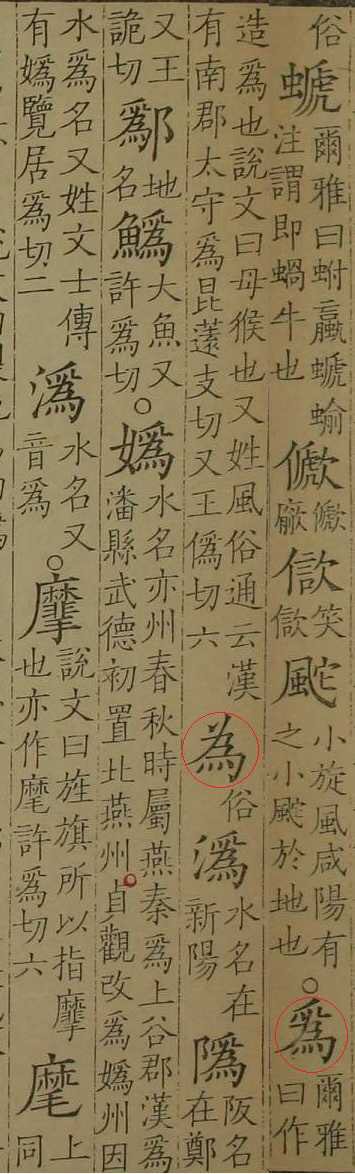 俗螔爾雅曰蚹蠃螔蝓注謂即蝸牛也笑小旋風咸陽有之小於地也○爲爾雅曰作
造爲也說文曰母猴也又姓風俗通云漢有南郡太守爲昆薳支切又王僞切六為俗潙水名在新陽阪名在鄭
又王詭切鄬地名大魚又許爲切○嬀水名亦州春秋時屬燕秦爲上谷郡漢爲潘縣武德初置北燕州貞觀改爲嬀州因
水爲名又姓文士傳有嬀覽居爲切二潙水名又音爲○說文曰旌旗所以指也亦作麾許爲切六麾上同